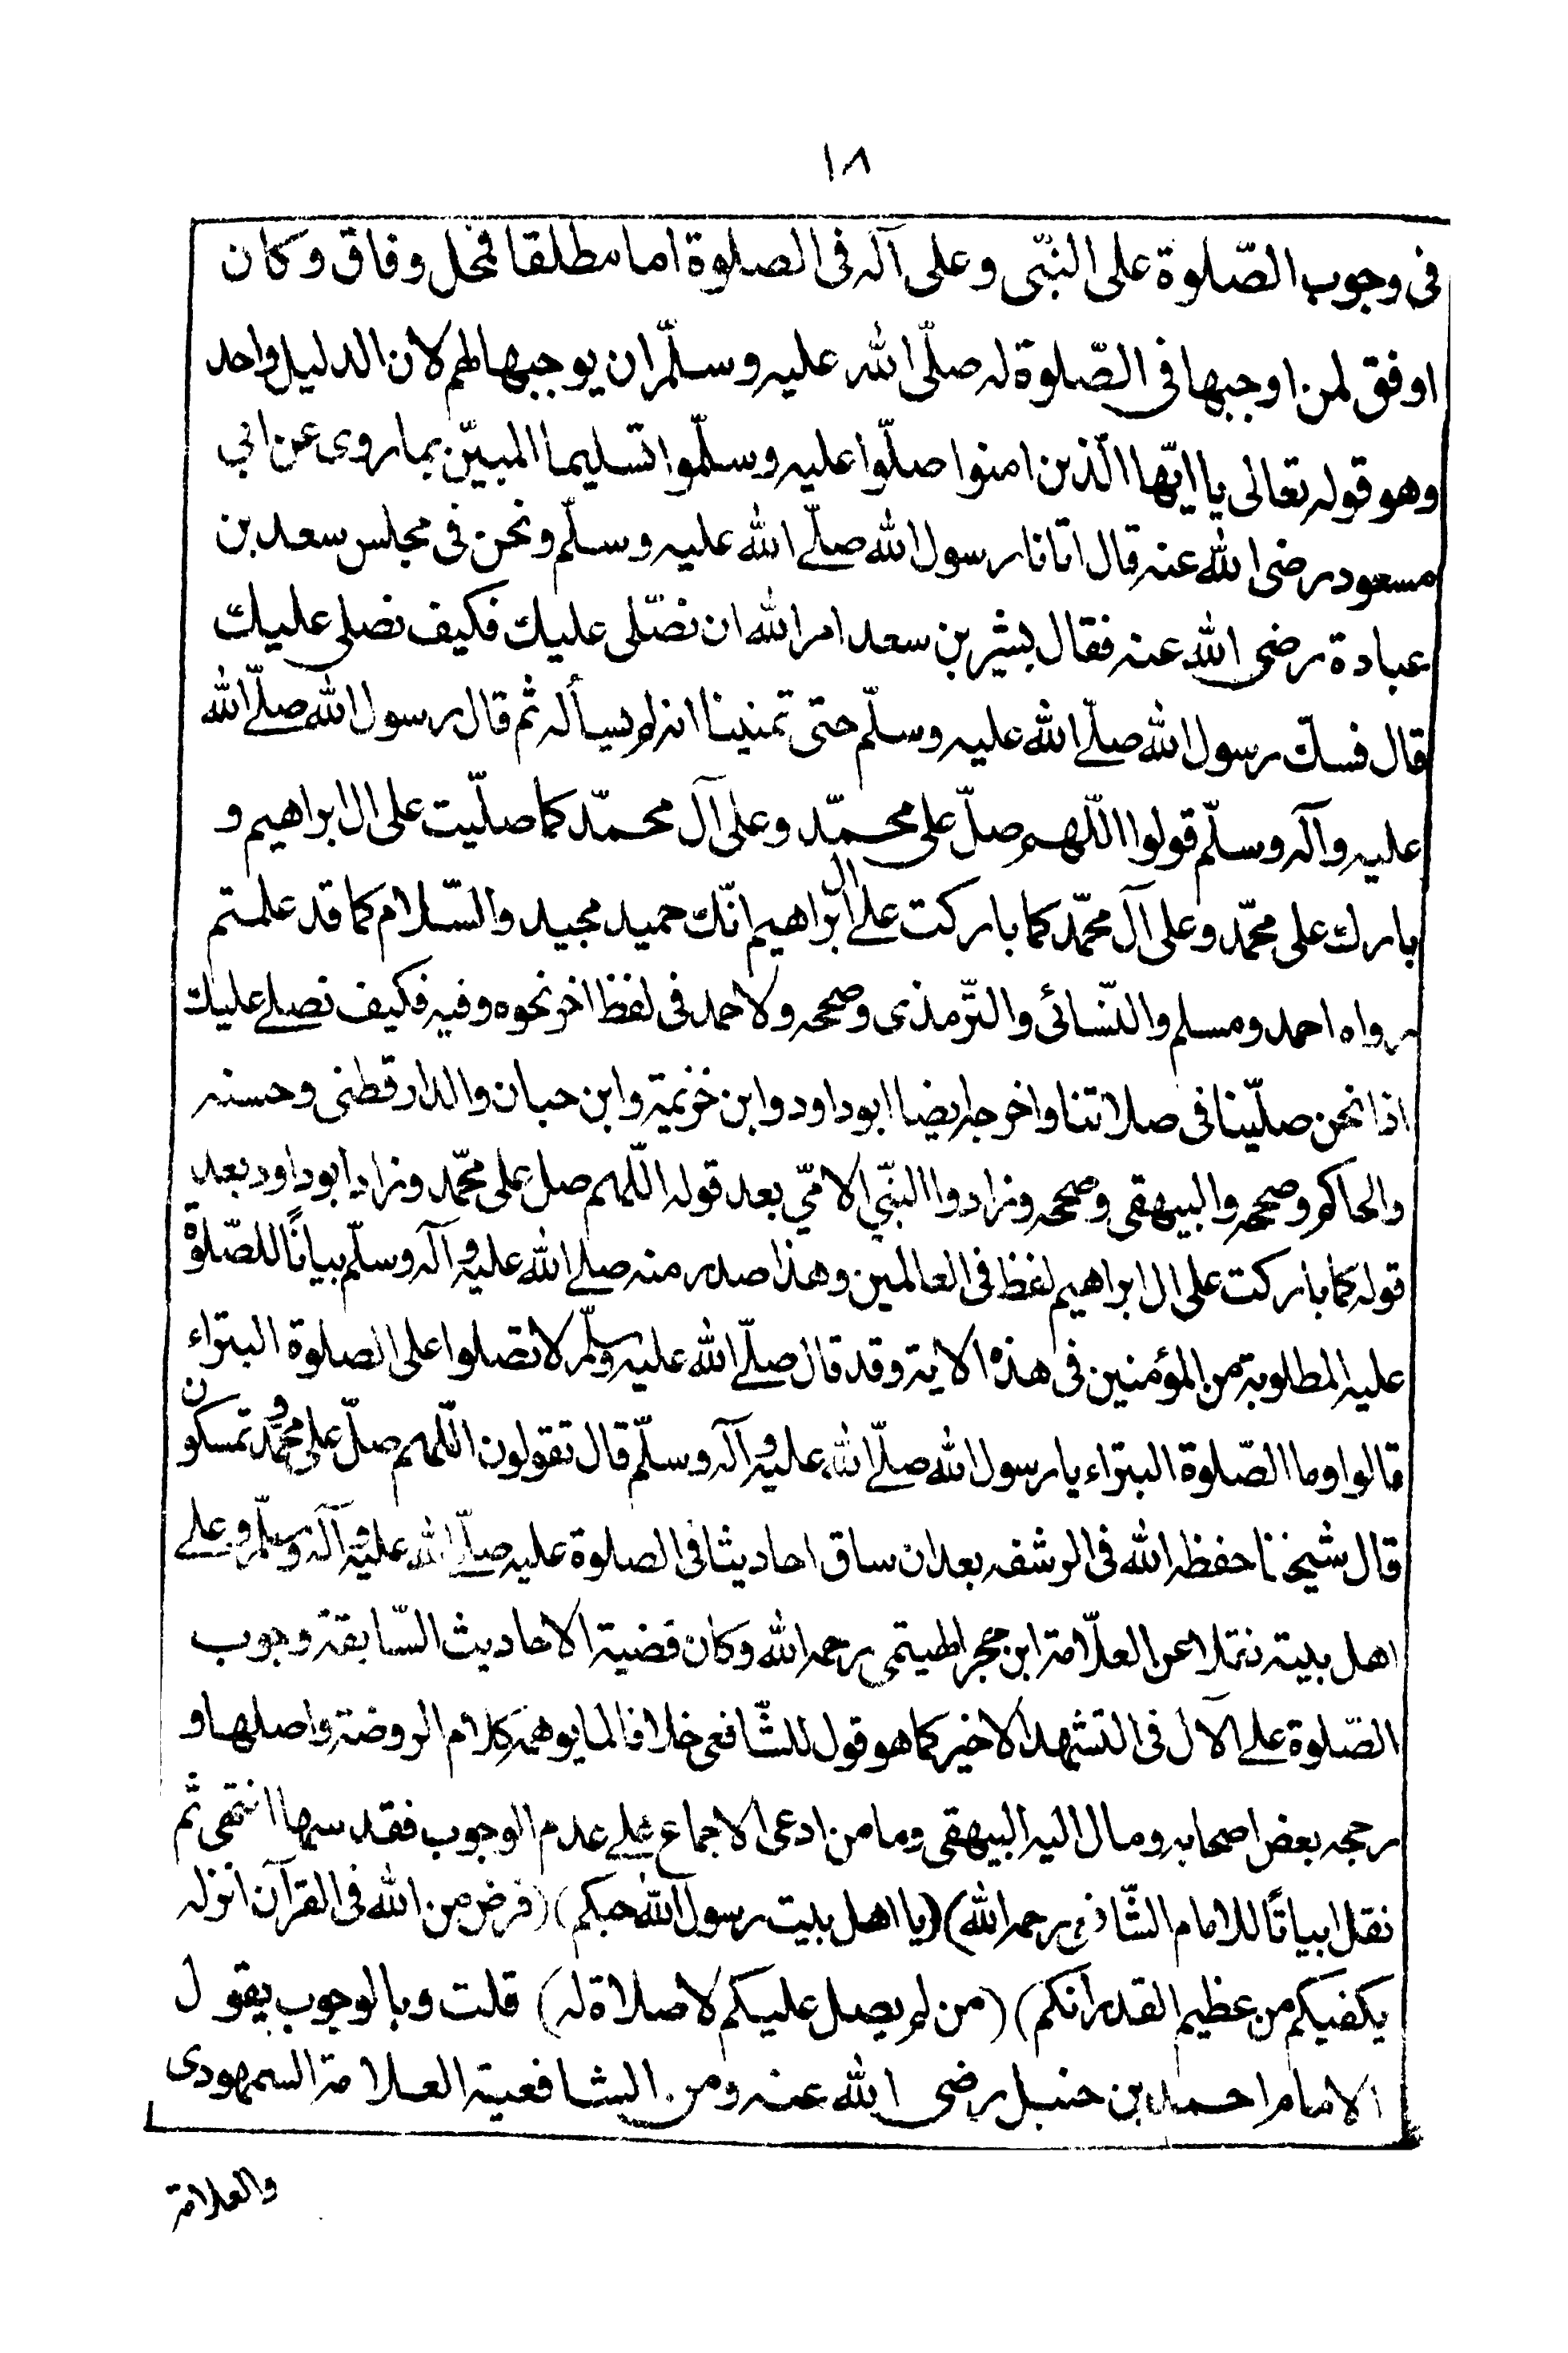 ١٨
فى وجوب الصّلوة على النبّى وعلى آله فى الصلوة اما مطلقا فمحل وفاق وكان
اوفق لمن اوجبها فى الصّلوة له صلّى الله عليه وسلّم ان يوجبها لهم لان الدليل واحد
وهو قوله تعالى يا ايّها الّذين امنوا صلّوا عليه وسلّموا تسليما المبيّن بما روى عن ابي
مسعود رضى الله عنه قال اتانا رسول الله صلّے الله عليه وسلّم ونحن فى مجلس سعد بن
عبادة رضى الله عنه فقال بشير بن سعد امر الله ان نصّلى عليك فكيف نصلى عليك
قال فسكت رسول الله صلّے الله عليه وسلّم حتى تمنينا انه لم يسأله ثم قال رسول الله صلّے الله
عليه وآله وسلّم قولوا اللّهم صلّ على محمّد وعلى آل محمّد كما صلّيت على ال ابراهيم و
بارك على محمّد وعلى آل محمّد كما باركت علے ال ابراهيم انّك حميد مجيد والسّلام كما قد علمتم
رواه احمد ومسلم والنّسائى والتّرمذى وصححه ولاحمد فى لفظ اخر نحوه وفيه فكيف نصلے عليك
اذا نحن صلّينا فى صلاتنا واخرجه ايضا ابو داود وابن خزيمة وابن حبان والدارقطنى وحسنه
والحاكم وصححه والبيهقى وصححه وزادوا النبّي الامّي بعد قوله اللّهم صل على محمّد وزاد ابو داود بعد
قوله كما باركت على ال ابراهيم لفظ فى العالمين وهذا صدر منه صلے الله عليه وآله وسلّم بيانًا للصّلوة
عليه المطلوبة من المؤمنين فى هذه الاية وقد قال صلّے الله عليه وسلّم لا تصلوا على الصلوة البتراء
قالوا وما الصّلوة البتراء يا رسول الله صلّے الله عليه وآله وسلّم قال تقولون اللّهم صلّ على محمّد وتمسكون
قال شيخنا حفظه الله فى الرشفه بعد ان ساق احاديثا فى الصلوة عليه صلّے الله عليه وآله وسلّم وعلے
اهل بيته نقلا عن العلّامة ابن حجر الهيتمى رحمه الله وكان قضية الاحاديث السّابقة وجوب
الصّلوة علے الآل فى التشهد الاخير كما هو قول للشّافعى خلافا لما يوهمه كلام الروضة واصلها و
رجحه بعض اصحابه ومال اليه البيهقى وما من ادعى الاجماع علے عدم الوجوب فقد سها انتهى ثم
نقل ابياتًا للامام الشّافعى رحمه الله) (يا اهل بيت رسول الله حبكم) (فرض من الله فى القرآن انزله
يكفيكم من عظيم القدر انكم) (من لم يصل عليكم لا صلاة له) قلت وبالوجوب يقول
الامام احمد بن حنبل رضى الله عنه ومن الشافعية العلامة السمهودى
والعلامة